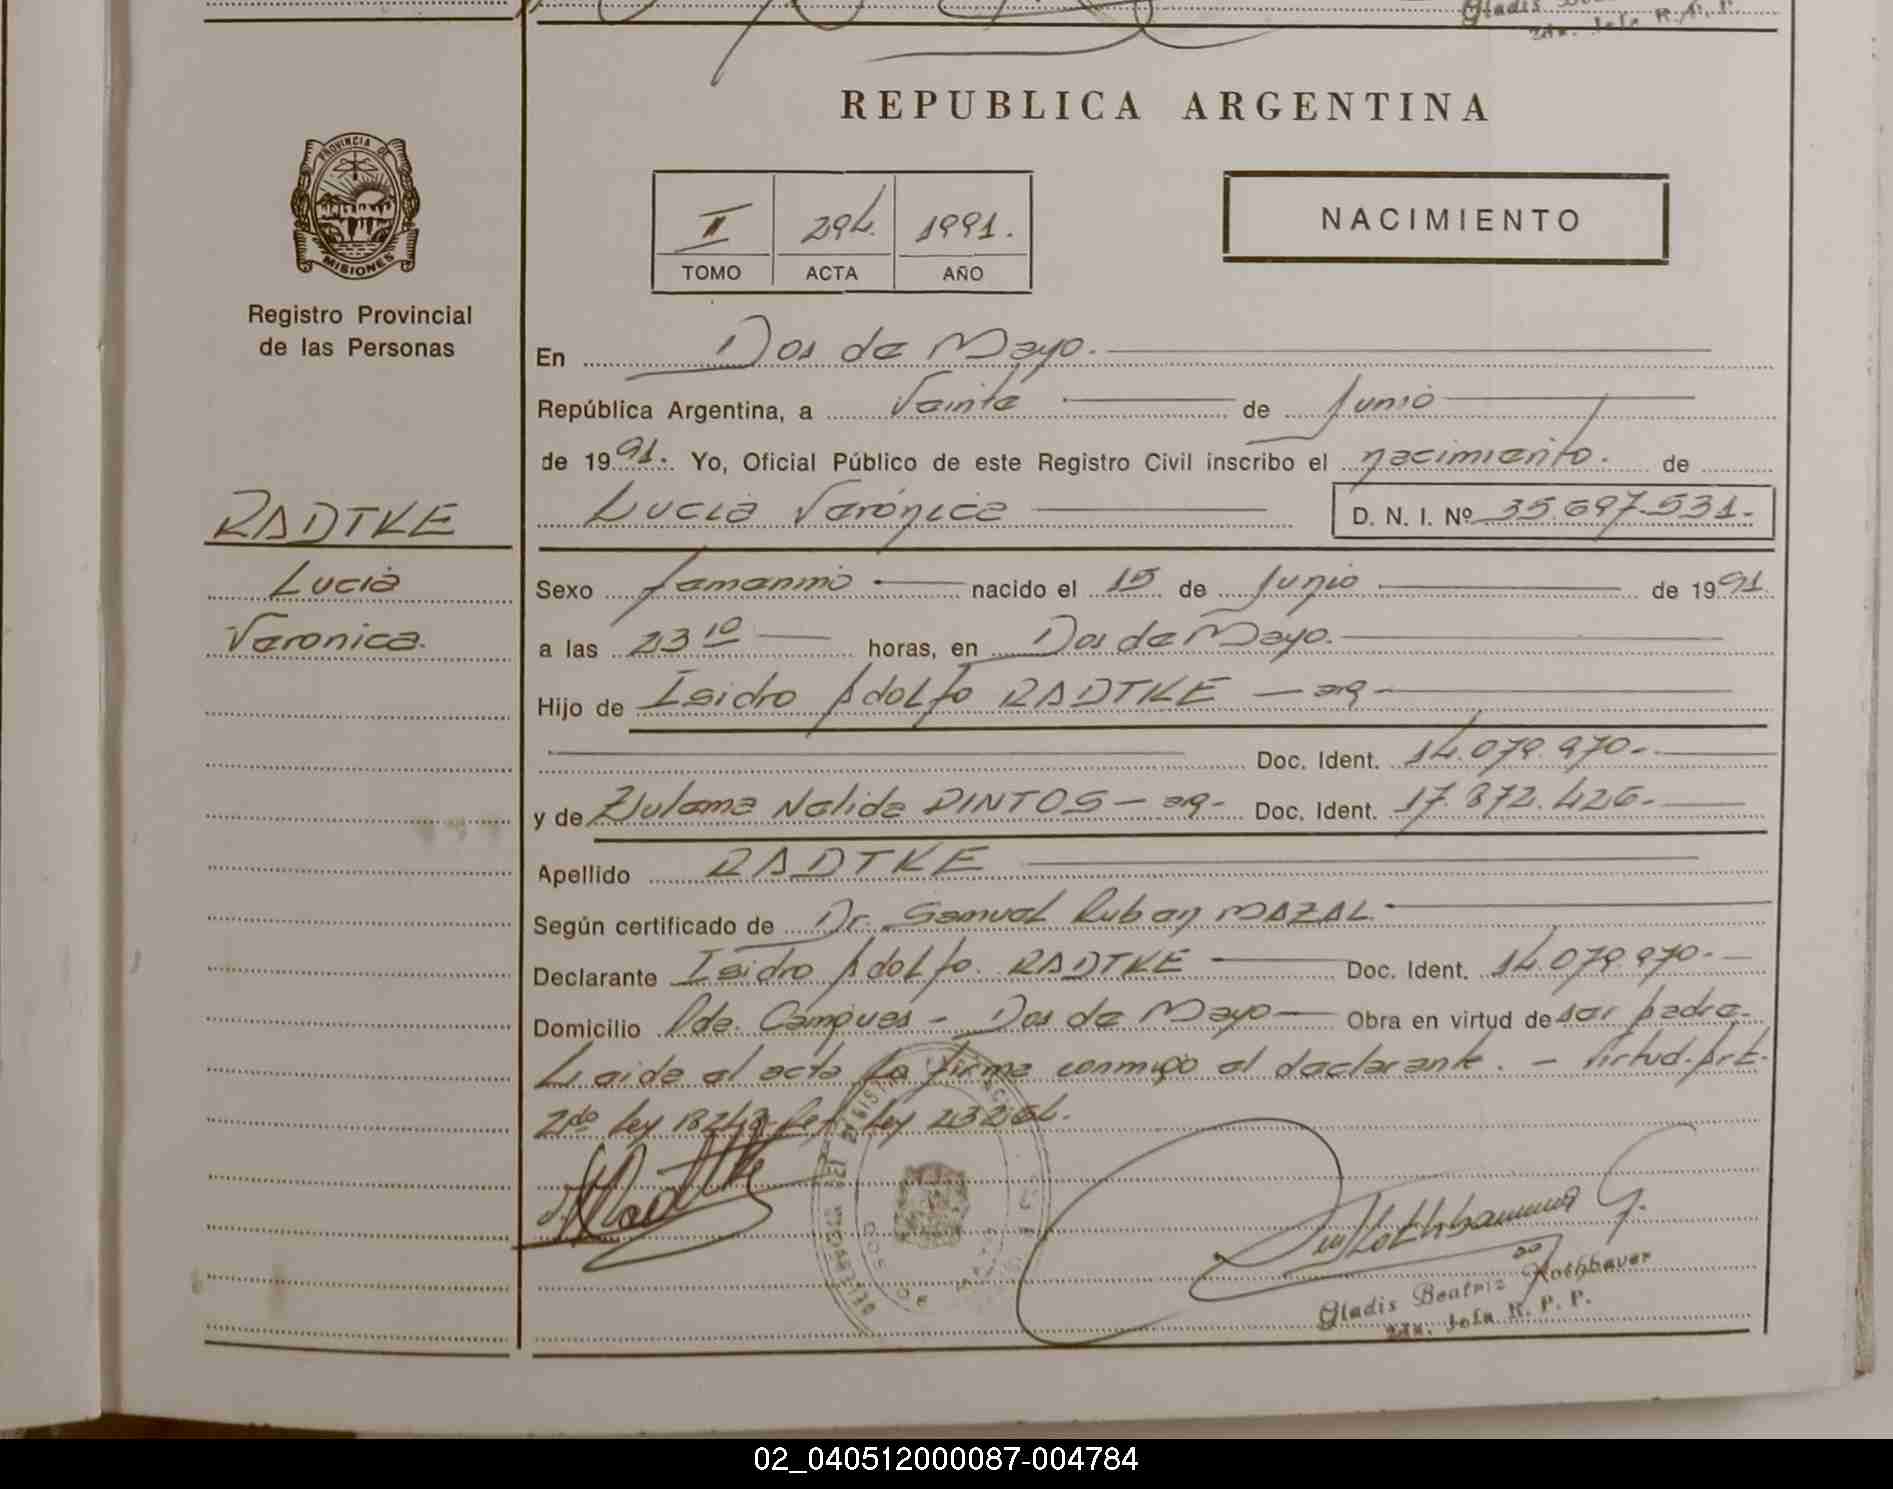 Gladis
2da. Jefa R. P. P.
REPUBLICA ARGENTINA
PROVINCIA DE
MISIONES
Registro Provincial
de las Personas
II 294. 1991.
TOMO ACTA AÑO
NACIMIENTO
En Dos de Mayo.
República Argentina, a Veinte de Junio
de 1991. Yo, Oficial Público de este Registro Civil inscribo el nacimiento. de
Lucia Verónica D. N. I. Nº 35.697.531.-
RADTKE
Lucia
Veronica.
Sexo femenino nacido el 15 de Junio de 1991.
a las 23 10 horas, en Dos de Mayo.
Hijo de Isidro Adolfo RADTKE - arg -
Doc. Ident. 14.079.970.-
y de Zulema Nelida PINTOS - arg - Doc. Ident. 17.872.426.-
Apellido RADTKE
Según certificado de Dr. Samuel Ruben MAZAL
Declarante Isidro Adolfo. RADTKE Doc. Ident. 14.079.970.-
Domicilio Pde. Campues - Dos de Mayo - Obra en virtud de ser padre.
Leida el acta la firma conmigo el declarante. - Virtud. Art.
2do Ley 18248 Ley 23264.
Gladis Beatriz Rothbauer
2da. Jefa R. P. P.
02_040512000087-004784